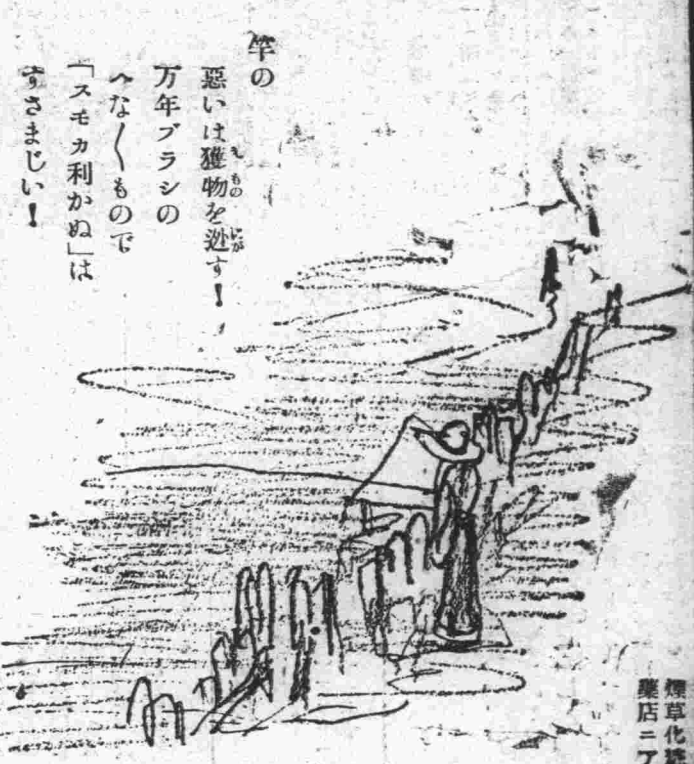 竿の
惡いは獲物を逃す!
万年ブラシの
へな〱もので
「スモカ利かぬ」は
すさまじい!
煙草化粧
藥店ニア